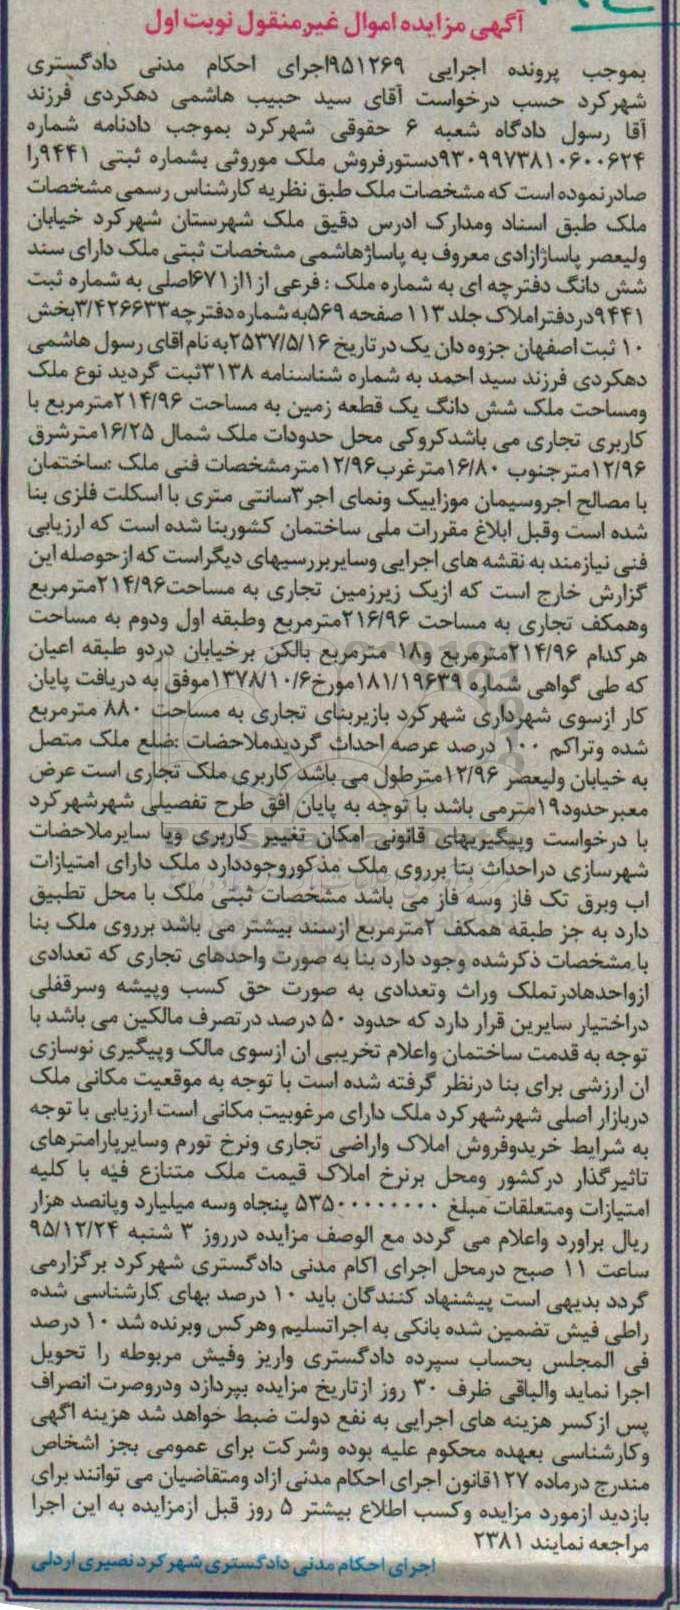 آگهی مزایده اموال غیرمنقول نوبت اول
بموجب پرونده اجرایی ۹۵۱۲۶۹اجرای احکام مدنی دادگستری
شهرکرد حسب درخواست آقای سید حبیب هاشمی دهکردی فرزند
آقا رسول دادگاه شعبه ۶ حقوقی شهرکرد بموجب دادنامه شماره
۹۳۰۹۹۷۳۸۱۰۶۰۰۶۲۴دستورفروش ملک موروثی بشماره ثبتی ۹۴۴۱را
صادرنموده است که مشخصات ملک طبق نظریه کارشناس رسمی مشخصات
ملک طبق اسناد ومدارک ادرس دقیق ملک شهرستان شهرکرد خیابان
ولیعصر پاساژازادی معروف به پاساژهاشمی مشخصات ثبتی ملک دارای سند
شش دانگ دفترچه ای به شماره ملک : فرعی از۱از۶۷۱اصلی به شماره ثبت
۹۴۴۱دردفتراملاک جلد ۱۱۳ صفحه ۵۶۹به شماره دفترچه ۳/۴۲۶۶۳۳بخش
۱۰ ثبت اصفهان جزوه دان یک در تاریخ ۲۵۳۷/۵/۱۶به نام اقای رسول هاشمی
دهکردی فرزند سید احمد به شماره شناسنامه ۳۱۳۸ثبت گردید نوع ملک
ومساحت ملک شش دانگ یک قطعه زمین به مساحت ۲۱۴/۹۶مترمربع با
کاربری تجاری می باشدکروکی محل حدودات ملک شمال ۱۶/۲۵مترشرق
۱۲/۹۶مترجنوب ۱۶/۸۰مترغرب۱۲/۹۶مترمشخصات فنی ملک :ساختمان
با مصالح اجروسیمان موزاییک ونمای اجر۳سانتی متری با اسکلت فلزی بنا
شده است وقبل ابلاغ مقررات ملی ساختمان کشوربنا شده است که ارزیابی
فنی نیازمند به نقشه های اجرایی وسایربررسیهای دیگراست که ازحوصله این
گزارش خارج است که ازیک زیرزمین تجاری به مساحت۲۱۴/۹۶مترمربع
وهمکف تجاری به مساحت ۲۱۶/۹۶مترمربع وطبقه اول ودوم به مساحت
هرکدام ۲۱۴/۹۶مترمربع و۱۸ مترمربع بالکن برخیابان دردو طبقه اعیان
که طی گواهی شماره ۱۸۱/۱۹۶۳۹مورخ۱۳۷۸/۱۰/۶موفق به دریافت پایان
کار ازسوی شهرداری شهرکرد بازیربنای تجاری به مساحت ۸۸۰ مترمربع
شده وتراکم ۱۰۰ درصد عرصه احداث گردیدملاحضات :ضلع ملک متصل
به خیابان ولیعصر ۱۲/۹۶مترطول می باشد کاربری ملک تجاری است عرض
معبرحدود۱۹مترمی باشد با توجه به پایان افق طرح تفصیلی شهرشهرکرد
با درخواست وپیگیریهای قانونی امکان تغییر کاربری ویا سایرملاحضات
شهرسازی دراحداث بنا برروی ملک مذکوروجوددارد ملک دارای امتیازات
اب وبرق تک فاز وسه فاز می باشد مشخصات ثبتی ملک با محل تطبیق
دارد به جز طبقه همکف ۲مترمربع ازسند بیشتر می باشد برروی ملک بنا
با مشخصات ذکرشده وجود دارد بنا به صورت واحدهای تجاری که تعدادی
ازواحدهادرتملک وراث وتعدادی به صورت حق کسب وپیشه وسرقفلی
دراختیار سایرین قرار دارد که حدود ۵۰ درصد درتصرف مالکین می باشد با
توجه به قدمت ساختمان واعلام تخریبی ان ازسوی مالک وپیگیری نوسازی
ان ارزشی برای بنا درنظر گرفته شده است با توجه به موقعیت مکانی ملک
دربازار اصلی شهرشهرکرد ملک دارای مرغوبیت مکانی است ارزیابی با توجه
به شرایط خریدوفروش املاک واراضی تجاری ونرخ تورم وسایرپارامترهای
تاثیرگذار درکشور ومحل برنرخ املاک قیمت ملک متنازع فیه با کلیه
امتیازات ومتعلقات مبلغ ۵۳۵۰۰۰۰۰۰۰۰ پنجاه وسه میلیارد وپانصد هزار
ریال براورد واعلام می گردد مع الوصف مزایده درروز ۳ شنبه ۹۵/۱۲/۲۴
ساعت ۱۱ صبح درمحل اجرای اکام مدنی دادگستری شهرکرد برگزارمی
گردد بدیهی است پیشنهاد کنندگان باید ۱۰ درصد بهای کارشناسی شده
راطی فیش تضمین شده بانکی به اجراتسلیم وهرکس وبرنده شد ۱۰ درصد
فی المجلس بحساب سپرده دادگستری واریز وفیش مربوطه را تحویل
اجرا نماید والباقی ظرف ۳۰ روز ازتاریخ مزایده بپردازد ودروصرت انصراف
پس ازکسر هزینه های اجرایی به نفع دولت ضبط خواهد شد هزینه اگهی
وکارشناسی بعهده محکوم علیه بوده وشرکت برای عمومی بجز اشخاص
مندرج درماده ۱۲۷قانون اجرای احکام مدنی ازاد ومتقاضیان می توانند برای
بازدید ازمورد مزایده وکسب اطلاع بیشتر ۵ روز قبل ازمزایده به این اجرا
مراجعه نمایند ۲۳۸۱
اجرای احکام مدنی دادگستری شهرکرد نصیری اردلی